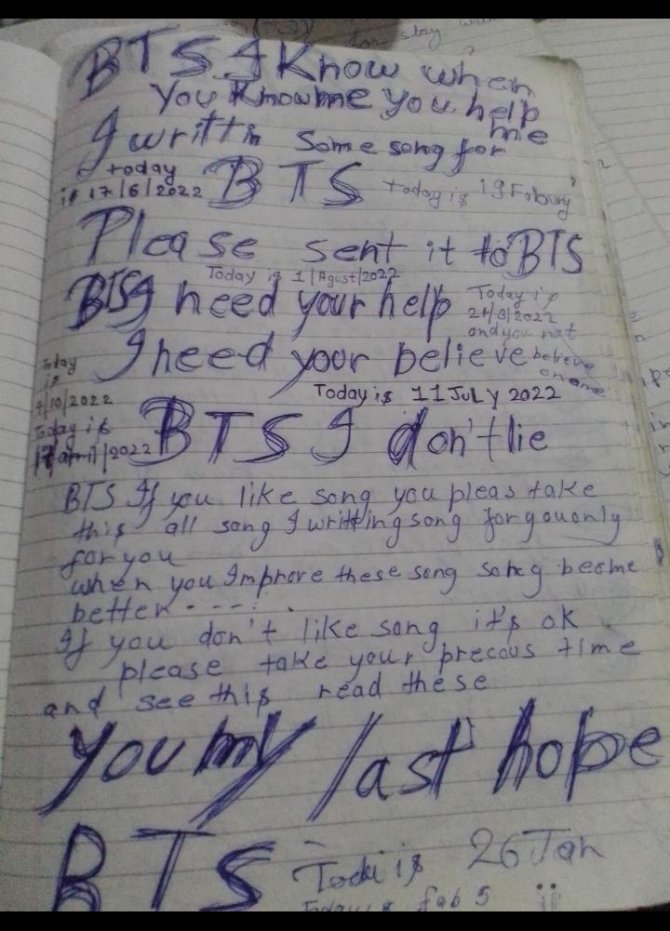 BTS I Know when
You Know me you help
me
I writtin some song for
today
is 17/6/2022 BTS today is 19 Foburuy
Please sent it to BTS
Today is 1/Agust/2022
BTS I need your help Today is
21/8/2022
and you not
I need your believe beleve
on me
Today
is
4/10/2022
Today is 11 JULY 2022
Today is
BTS I don't lie
BTS If you like song you pleas take
this all song I writting song for you only
for you
when you Improve these song song become
better - - - - . .
If you don't like song it's ok
please take your precous time
and see this read these
you my last hope
BTS Todei is 26 Jan
Today is fab 5 ii